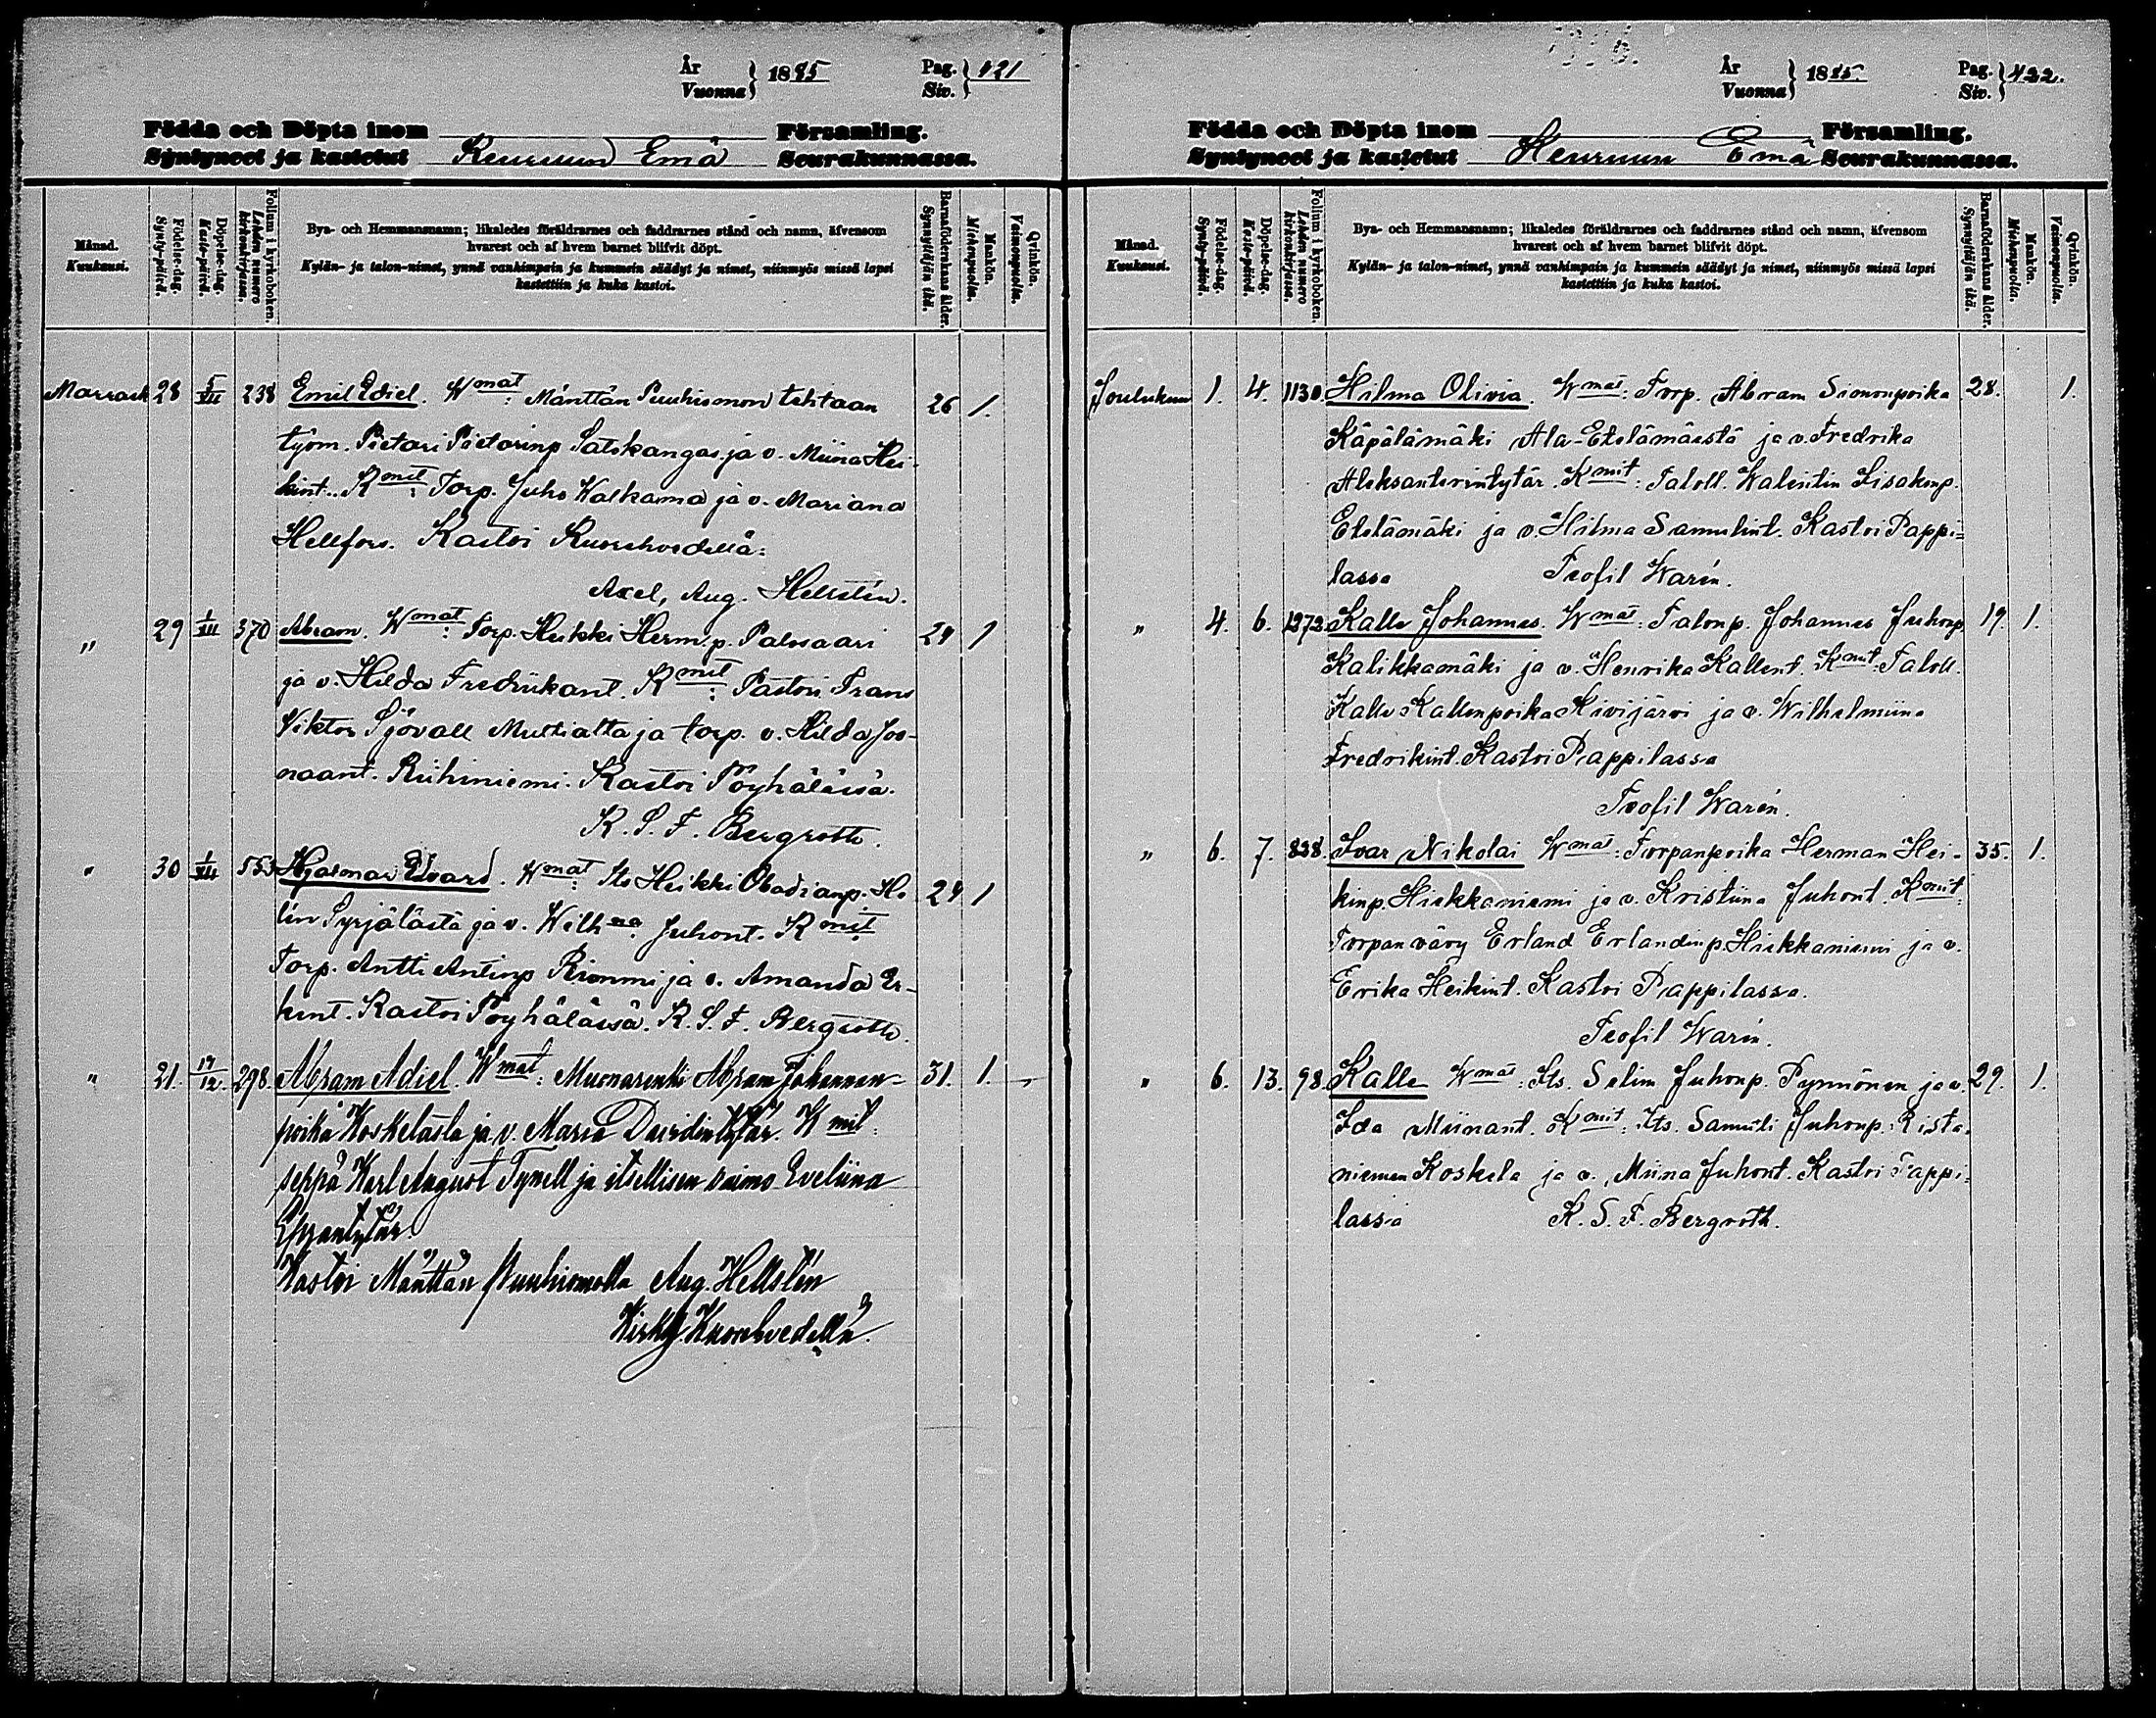 År
Vuonna } 1885 Pag.
Siv. } 421
Födda och Döpta inom Församling.
Syntyneet ja kastetut Keuruun Emä Seurakunnassa.
Månad.
Kuukausi.
Födelse-dag.
Synty-päivä.
Döpelse-dag.
Kaste-päivä.
Folium i kyrkoboken.
Lehden numero kirkonkirjassa.
Bya- och Hemmansnamn; likaledes föräldrarnes och faddrarnes stånd och namn, äfvensom
hvarest och af hvem barnet blifvit döpt.
Kylän- ja talon-nimet, ynnä vanhimpain ja kummein säädyt ja nimet, niinmyös missä lapsi
kastettiin ja kuka kastoi.
Barnaföderskans ålder.
Synnyttäjän ikä.
Mankön.
Miehenpuolia.
Qvinkön.
Vaimonpuolia.
Marrask 28 5/XII 238 Emil Ediel. Wmat: Mänttän Puuhiomon tehtaan 26 1.
työm. Pietari Pietarinp Satokangas ja v. Miina Hei-
kint. Kmit: Torp. Juho Walkama ja v. Mariana
Hellfors. Kastoi Kuorehvedellä:
Axel, Aug. Hellstén.
" 29 1/XII 370 Abram. Wmat: Torp. Heikki Herm.p. Palosaari 24 1
ja v. Hilda Fredrikant. Kmit: Pastori Frans
Viktor Sjövall Multialta ja torp. v. Hilda Joo-
naant. Riihiniemi. Kastoi Pöyhölässä.
K. S. F. Bergroth.
" 30 1/XII 553 Hjalmar Edvard. Wmat: Its Heikki Obadianp. Ho 24 1
lin Syrjälästä ja v. Wilhna Juhont. Kmit
Torp. Antti Antinp Rimmi ja v. Amanda Er-
kint. Kastoi Pöyhölässä. K. S. F. Bergroth.
" 21. 17/12. 298. Abram Adiel. Wmat: Muonarenki Abram Johannen- 31. 1. —
poika Koskelasta ja v. Maria Davidintytär. Kmit:
seppä Karl August Tynell ja itsellisen vaimo Eveliina
Kastoi Mänttän Puuhiomolla Aug. Hellstén
Kirkh. Kuorehvedellä.
År
Vuonna } 1885 Pag.
Siv. } 422.
Födda och Döpta inom Församling.
Syntyneet ja kastetut Keuruun Emä Seurakunnassa.
Månad.
Kuukausi.
Födelse-dag.
Synty-päivä.
Döpelse-dag.
Kaste-päivä.
Folium i kyrkoboken.
Lehden numero kirkonkirjassa.
Bya- och Hemmansnamn; likaledes föräldrarnes och faddrarnes stånd och namn, äfvensom
hvarest och af hvem barnet blifvit döpt.
Kylän- ja talon-nimet, ynnä vanhimpain ja kummein säädyt ja nimet, niinmyös missä lapsi
kastettiin ja kuka kastoi.
Barnaföderskans ålder.
Synnyttäjän ikä.
Mankön.
Miehenpuolia.
Qvinkön.
Vaimonpuolia.
Joulukuu 1. 4. 1130. Hilma Olivia. Wmat: Torp. Abram Simonpoika 28. 1.
Käpälämäki Ala-Etelämäestä ja v. Fredrika
Aleksanterintytär. Kmit: Taloll. Walentin Iisakinp.
Etelämäki ja v. Hilma Samulint. Kastoi Pappi=
lassa Teofil Warén.
" 4. 6. 1272. Kalle Johannes. Wmat: Talonp. Johannes Juhonp 19. 1.
Kalikkamäki ja v. Henrika Kallent. Kmit: Taloll.
Kalle Kallenpoika Kivijärvi ja v. Wilhelmiina
Fredrikint. Kastoi Pappilassa
Teofil Warén.
" 6. 7. 828. Ivar Nikolai Wmat: Torpanpoika Herman Hei- 35. 1.
kinp. Hiekkaniemi ja v. Kristiina Juhont. Kmit:
Torpan vävy Erland Erlandinp. Hiekkaniemi ja v.
Erika Heikint. Kastoi Pappilassa.
Teofil Warén.
" 6. 13. 98. Kalle Wmat: Its. Selim Juhonp. Pynnönen ja v. 29. 1.
Ida Miinant. Kmit: Its. Samuli Juhonp. Rista-
niemen Koskela ja v. Miina Juhont. Kastoi Pappi=
lassa K. S. F. Bergroth.